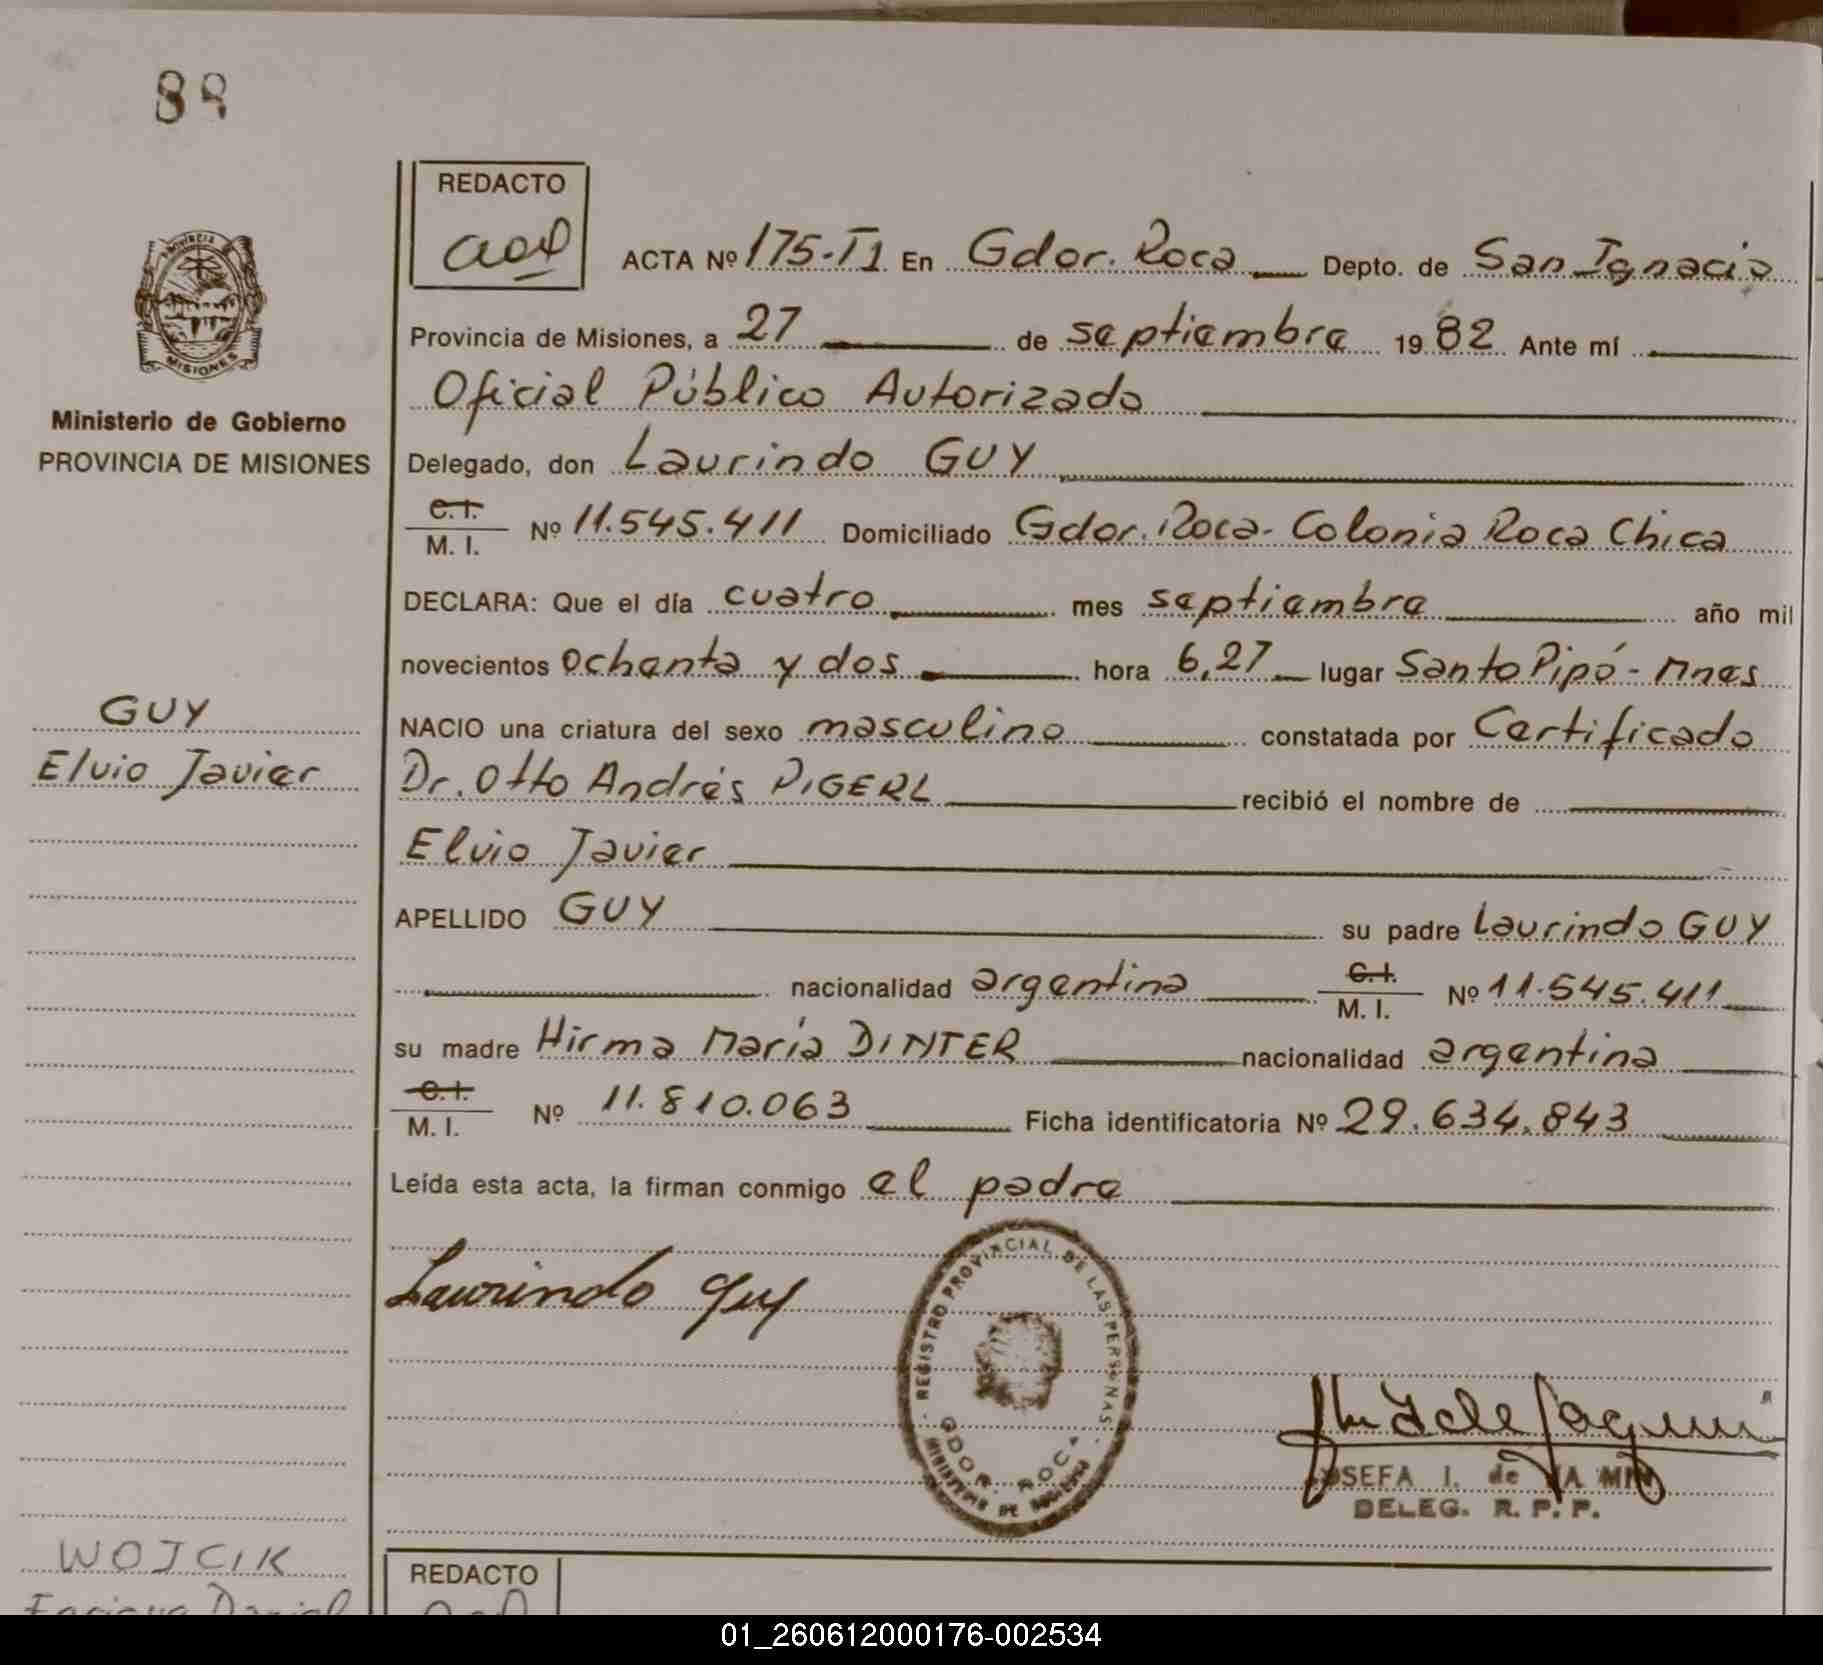 88
REDACTO
ACTA Nº 175-T1 En Gdor. Roca Depto. de San Ignacio
Provincia de Misiones, a 27 de septiembre 1982 Ante mí
Oficial Público Autorizado
Delegado, don Laurindo GUY
C.I. M. I. Nº 11.545.411 Domiciliado Gdor. Roca- Colonia Roca Chica
DECLARA: Que el día cuatro mes septiembre año mil
novecientos ochenta y dos hora 6,27 lugar Santo Pipó - Mnes
NACIO una criatura del sexo masculino constatada por Certificado
Dr. Otto Andrés PIGERL recibió el nombre de
Elvio Javier
APELLIDO GUY su padre Laurindo GUY
nacionalidad argentina C.I. M. I. Nº 11.545.411
su madre Hirma María DINTER nacionalidad argentina
C.I. M. I. Nº 11.810.063 Ficha identificatoria Nº 29.634.843
Leída esta acta, la firman conmigo el padre
Laurindo Guy
PROVINCIA
MISIONES
Ministerio de Gobierno
PROVINCIA DE MISIONES
GUY
Elvio Javier
REGISTRO PROVINCIAL DE LAS PERSONAS
GDOR. ROCA
MINISTERIO DE GOBIERNO
JOSEFA I. de
DELEG. R. P. P.
WOJCIK
Enrique Daniel
REDACTO
01_260612000176-002534